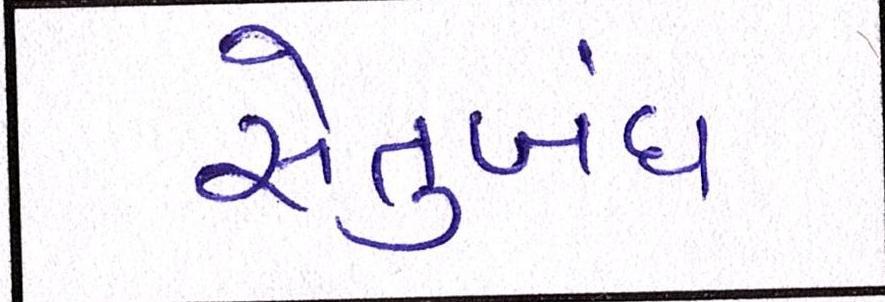 સેતુબંધ